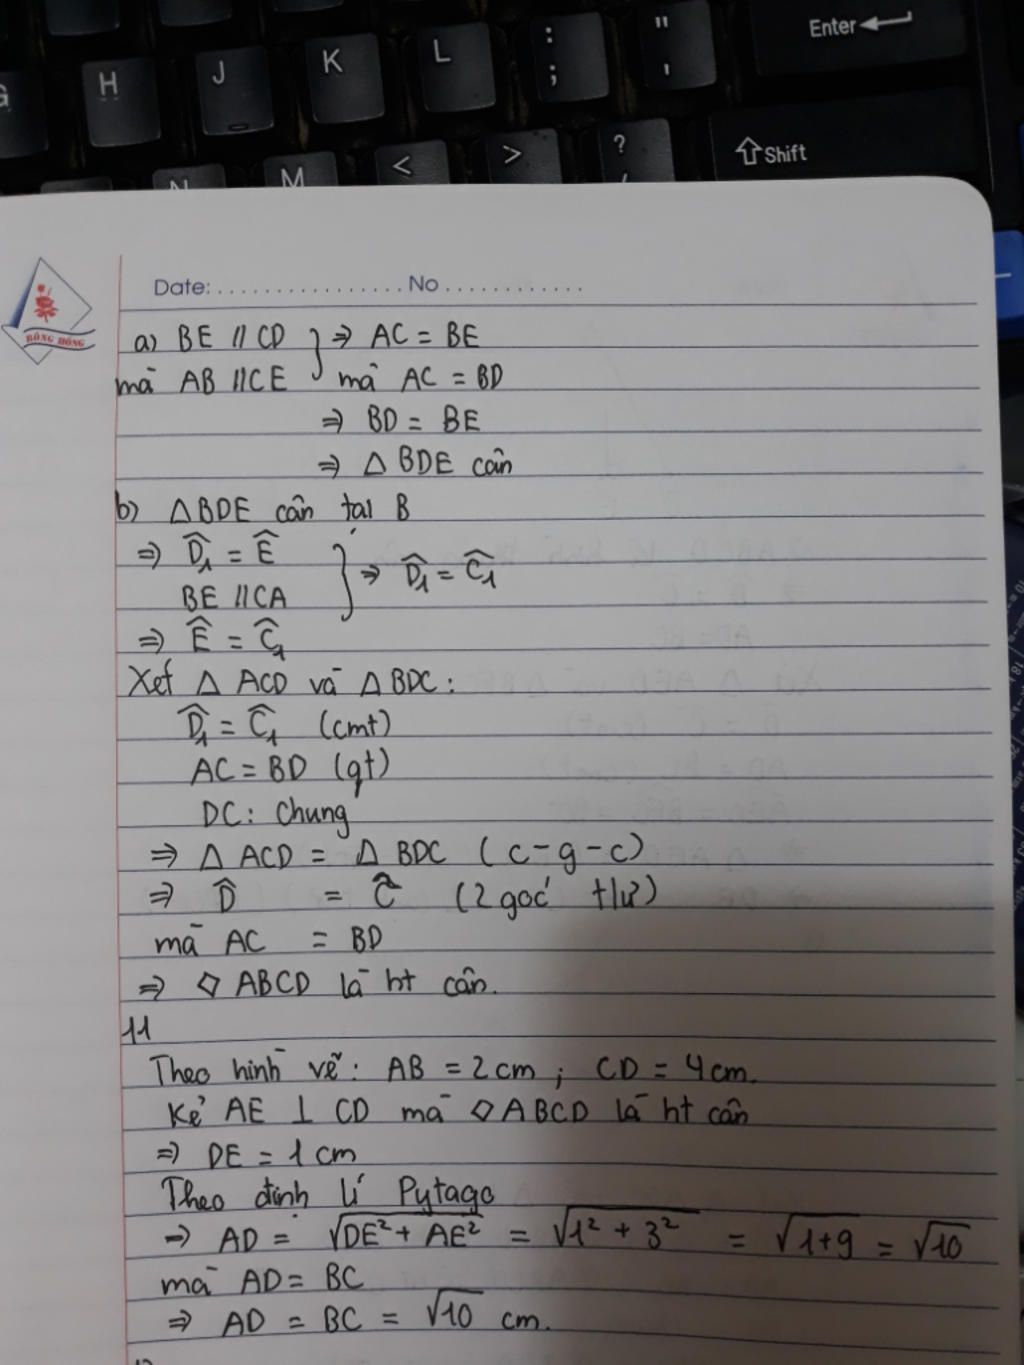 Enter
G H J K L : ; " '
Shift
N M < > ? /
Date: ................ No ............
BÔNG HỒNG
a) BE // CD } ⇒ AC = BE
mà AB // CE mà AC = BD
⇒ BD = BE
⇒ △ BDE cân
b) △ BDE cân tại B
⇒ D̂₁ = Ê } ⇒ D̂₁ = Ĉ₁
BE // CA
⇒ Ê = Ĉ₁
Xét △ ACD và △ BDC:
D̂₁ = Ĉ₁ (cmt)
AC = BD (gt)
DC: Chung
⇒ △ ACD = △ BDC (c-g-c)
⇒ D̂ = Ĉ (2 góc t/ư)
mà AC = BD
⇒ ◇ ABCD là ht cân.
11
Theo hình vẽ: AB = 2 cm ; CD = 4 cm.
Kẻ AE ⊥ CD mà ◇ ABCD là ht cân
⇒ DE = 1 cm
Theo định lí Pytago
⇒ AD = √DE² + AE² = √1² + 3² = √1+9 = √10
mà AD = BC
⇒ AD = BC = √10 cm.